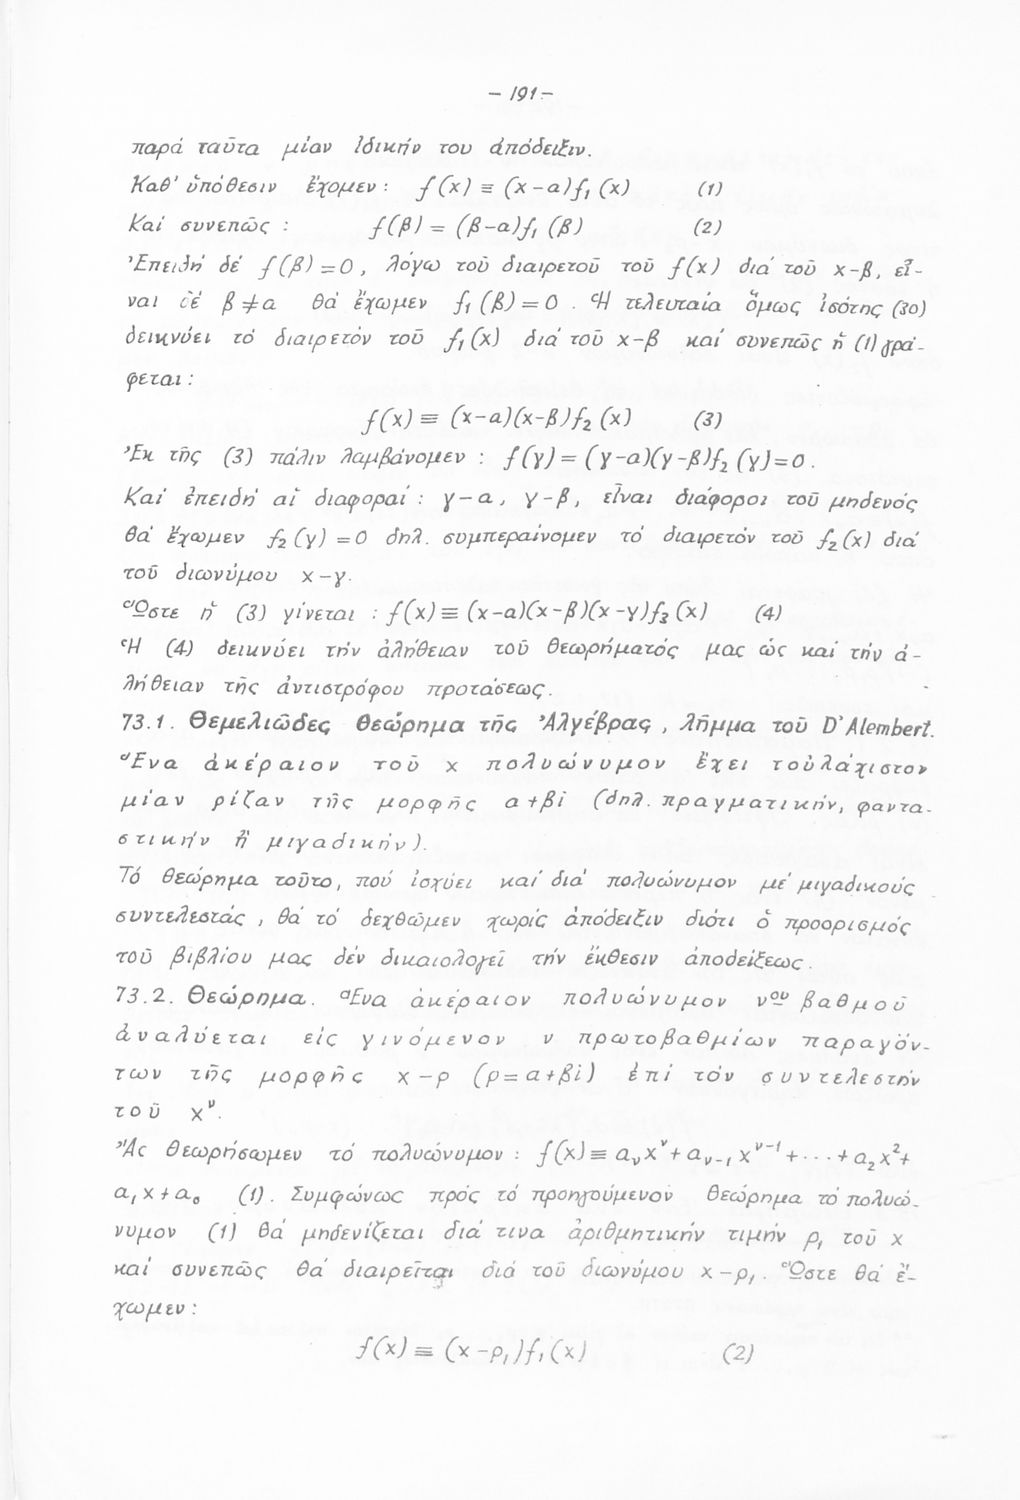 - 191 -
παρά ταῦτα μίαν ἰδικήν του ἀπόδειξιν.
Καθ' ὑπόθεσιν ἔχομεν : f(x) ≡ (x-α)f₁(x) (1)
Καί συνεπῶς : f(β) = (β-α)f₁(β) (2)
Ἐπειδή δέ f(β) = 0, λόγω τοῦ διαιρετοῦ τοῦ f(x) διά τοῦ x-β, εἶ-
ναι δέ β ≠ α θά ἔχωμεν f₁(β) = 0 . Ἡ τελευταία ὅμως ἰσότης (30)
δεικνύει τό διαιρετόν τοῦ f₁(x) διά τοῦ x-β καί συνεπῶς ἡ (1) γρά-
φεται :
f(x) ≡ (x-α)(x-β)f₂(x) (3)
Ἐκ τῆς (3) πάλιν λαμβάνομεν : f(γ) = (γ-α)(γ-β)f₂(γ) = 0.
Καί ἐπειδή αἱ διαφοραί : γ-α, γ-β, εἶναι διάφοροι τοῦ μηδενός
θά ἔχωμεν f₂(γ) = 0 δηλ. συμπεραίνομεν τό διαιρετόν τοῦ f₂(x) διά
τοῦ διωνύμου x-γ.
Ὥστε ἡ (3) γίνεται : f(x) ≡ (x-α)(x-β)(x-γ)f₃(x) (4)
Ἡ (4) δεικνύει τήν ἀλήθειαν τοῦ θεωρήματός μας ὡς καί τήν ἀ-
λήθειαν τῆς ἀντιστρόφου προτάσεως.
73.1. Θεμελιῶδες θεώρημα τῆς Ἀλγέβρας, λῆμμα τοῦ D'Alembert.
Ἕνα ἀκέραιον τοῦ x πολυώνυμον ἔχει τοὐλάχιστον
μίαν ρίζαν τῆς μορφῆς α+βi (δηλ. πραγματικήν, φαντα-
στικήν ἤ μιγαδικήν).
Τό θεώρημα τοῦτο, πού ἰσχύει καί διά πολυώνυμον μέ μιγαδικούς
συντελεστάς, θά τό δεχθῶμεν χωρίς ἀπόδειξιν διότι ὁ προορισμός
τοῦ βιβλίου μας δέν δικαιολογεῖ τήν ἔκθεσιν ἀποδείξεως.
73.2. Θεώρημα. Ἕνα ἀκέραιον πολυώνυμον νου βαθμοῦ
ἀναλύεται εἰς γινόμενον ν πρωτοβαθμίων παραγόν-
των τῆς μορφῆς x-ρ (ρ=α+βi) ἐπί τόν συντελεστήν
τοῦ xᵛ.
Ἄς θεωρήσωμεν τό πολυώνυμον : f(x) ≡ αᵥxᵛ + αᵥ₋₁xᵛ⁻¹ + ... + α₂x² +
α₁x + α₀ (1). Συμφώνως πρός τό προηγούμενον θεώρημα τό πολυώ-
νυμον (1) θά μηδενίζεται διά τινα ἀριθμητικήν τιμήν ρ₁ τοῦ x
καί συνεπῶς θά διαιρεῖται διά τοῦ διωνύμου x-ρ₁. Ὥστε θά ἔ-
χωμεν :
f(x) ≡ (x-ρ₁)f₁(x) (2)